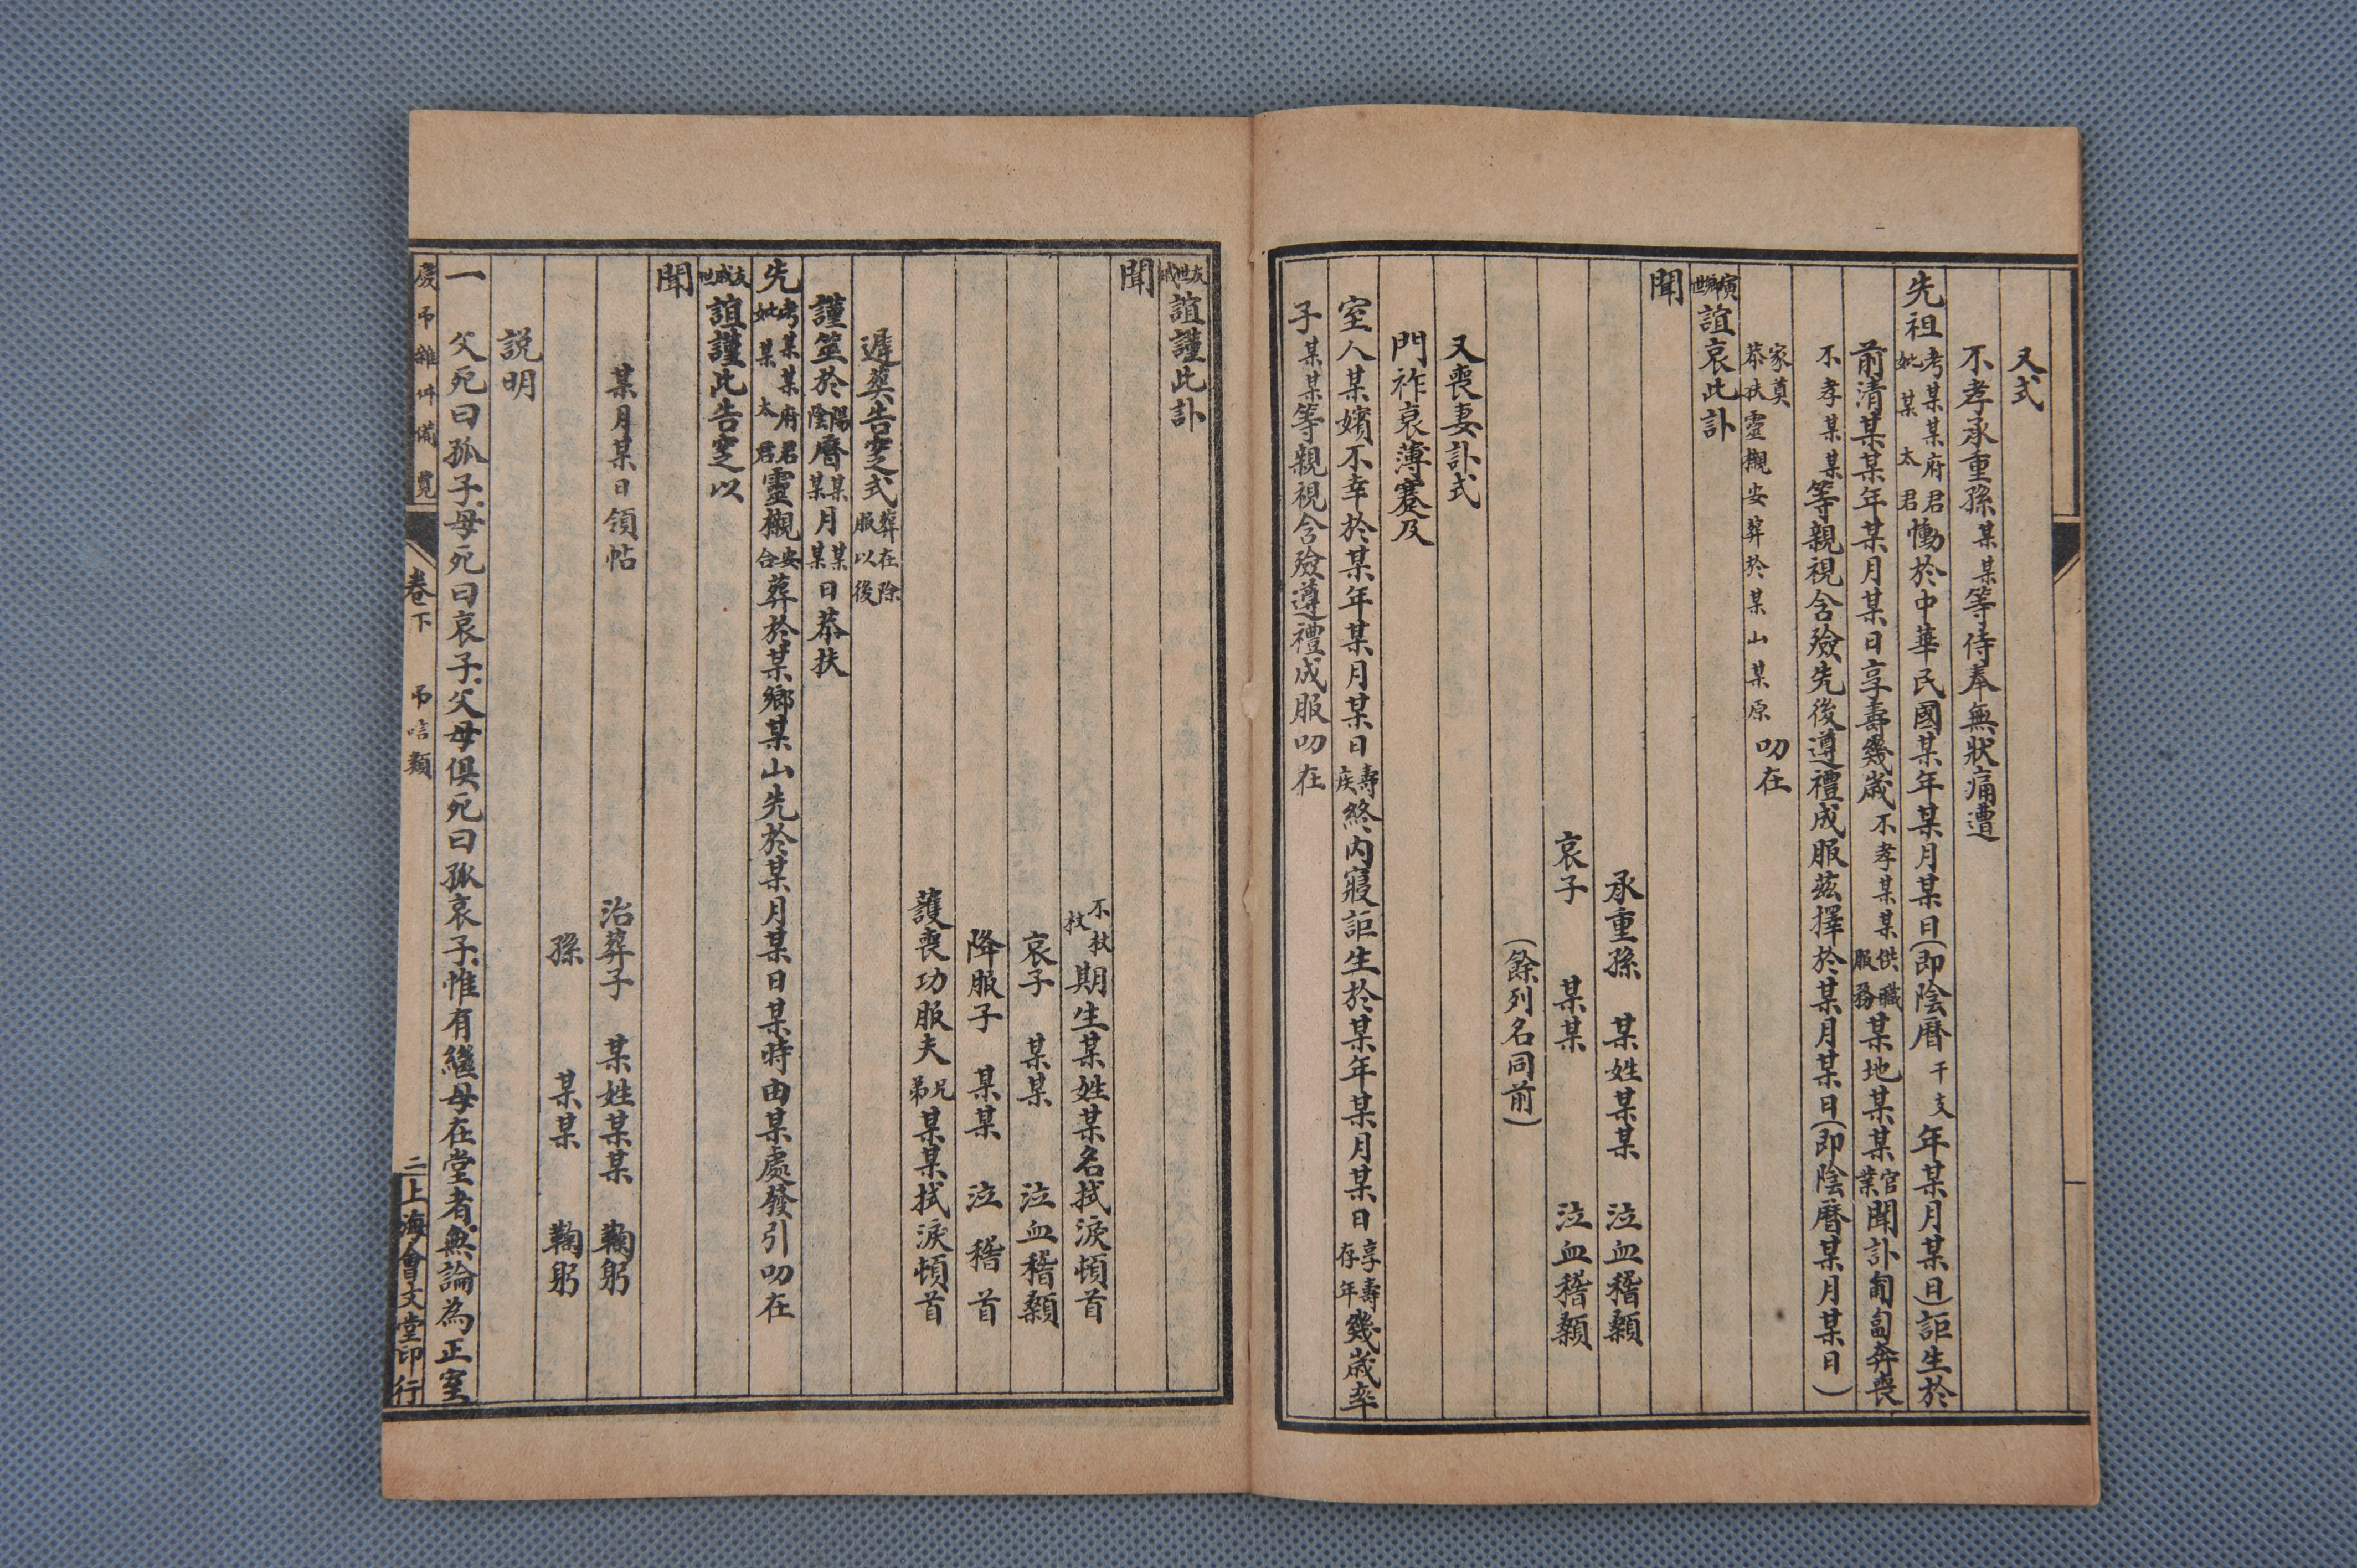 又式
不孝承重孫某某等侍奉無狀痛遭
先祖考妣某某某府太君君慟於中華民國某年某月某日(即陰曆干支年某月某日)詎生於
前清某某年某月某日享壽幾歲不孝某某供職服務某地某某官業聞訃匍匐奔喪
不孝某某等親視含殮先後遵禮成服茲擇於某月某日(即陰曆某月某日)
家奠恭扶靈櫬安葬於某山某原叨在
寅鄉世誼哀此訃
聞
承重孫 某姓某某 泣血稽顙
哀子 某某 泣血稽顙
(餘列名同前)
又喪妻訃式
門祚衰薄蹇及
室人某嬪不幸於某年某月某日壽疾終內寢詎生於某年某月某日享壽存年幾歲卒
子某某等親視含殮遵禮成服叨在
友世戚誼謹此訃
聞
不杖杖期生某姓某名拭淚頓首
哀子 某某 泣血稽顙
降服子 某某 泣稽首
護喪功服夫兄弟某某拭淚頓首
遲葬告窆式葬在除服以後
謹筮於陽陰曆某某月某某日恭扶
先考妣某某某府太君君靈櫬安合葬於某鄉某山先於某月某日某時由某處發引叨在
友戚世誼謹此告窆以
聞
某月某日領帖
治葬子 某姓某某 鞠躬
孫 某某 鞠躬
説明
一 父死曰孤子母死曰哀子父母俱死曰孤哀子惟有繼母在堂者無論為正室
慶弔雜件備覽 卷下 弔唁類 二 上海會文堂印行